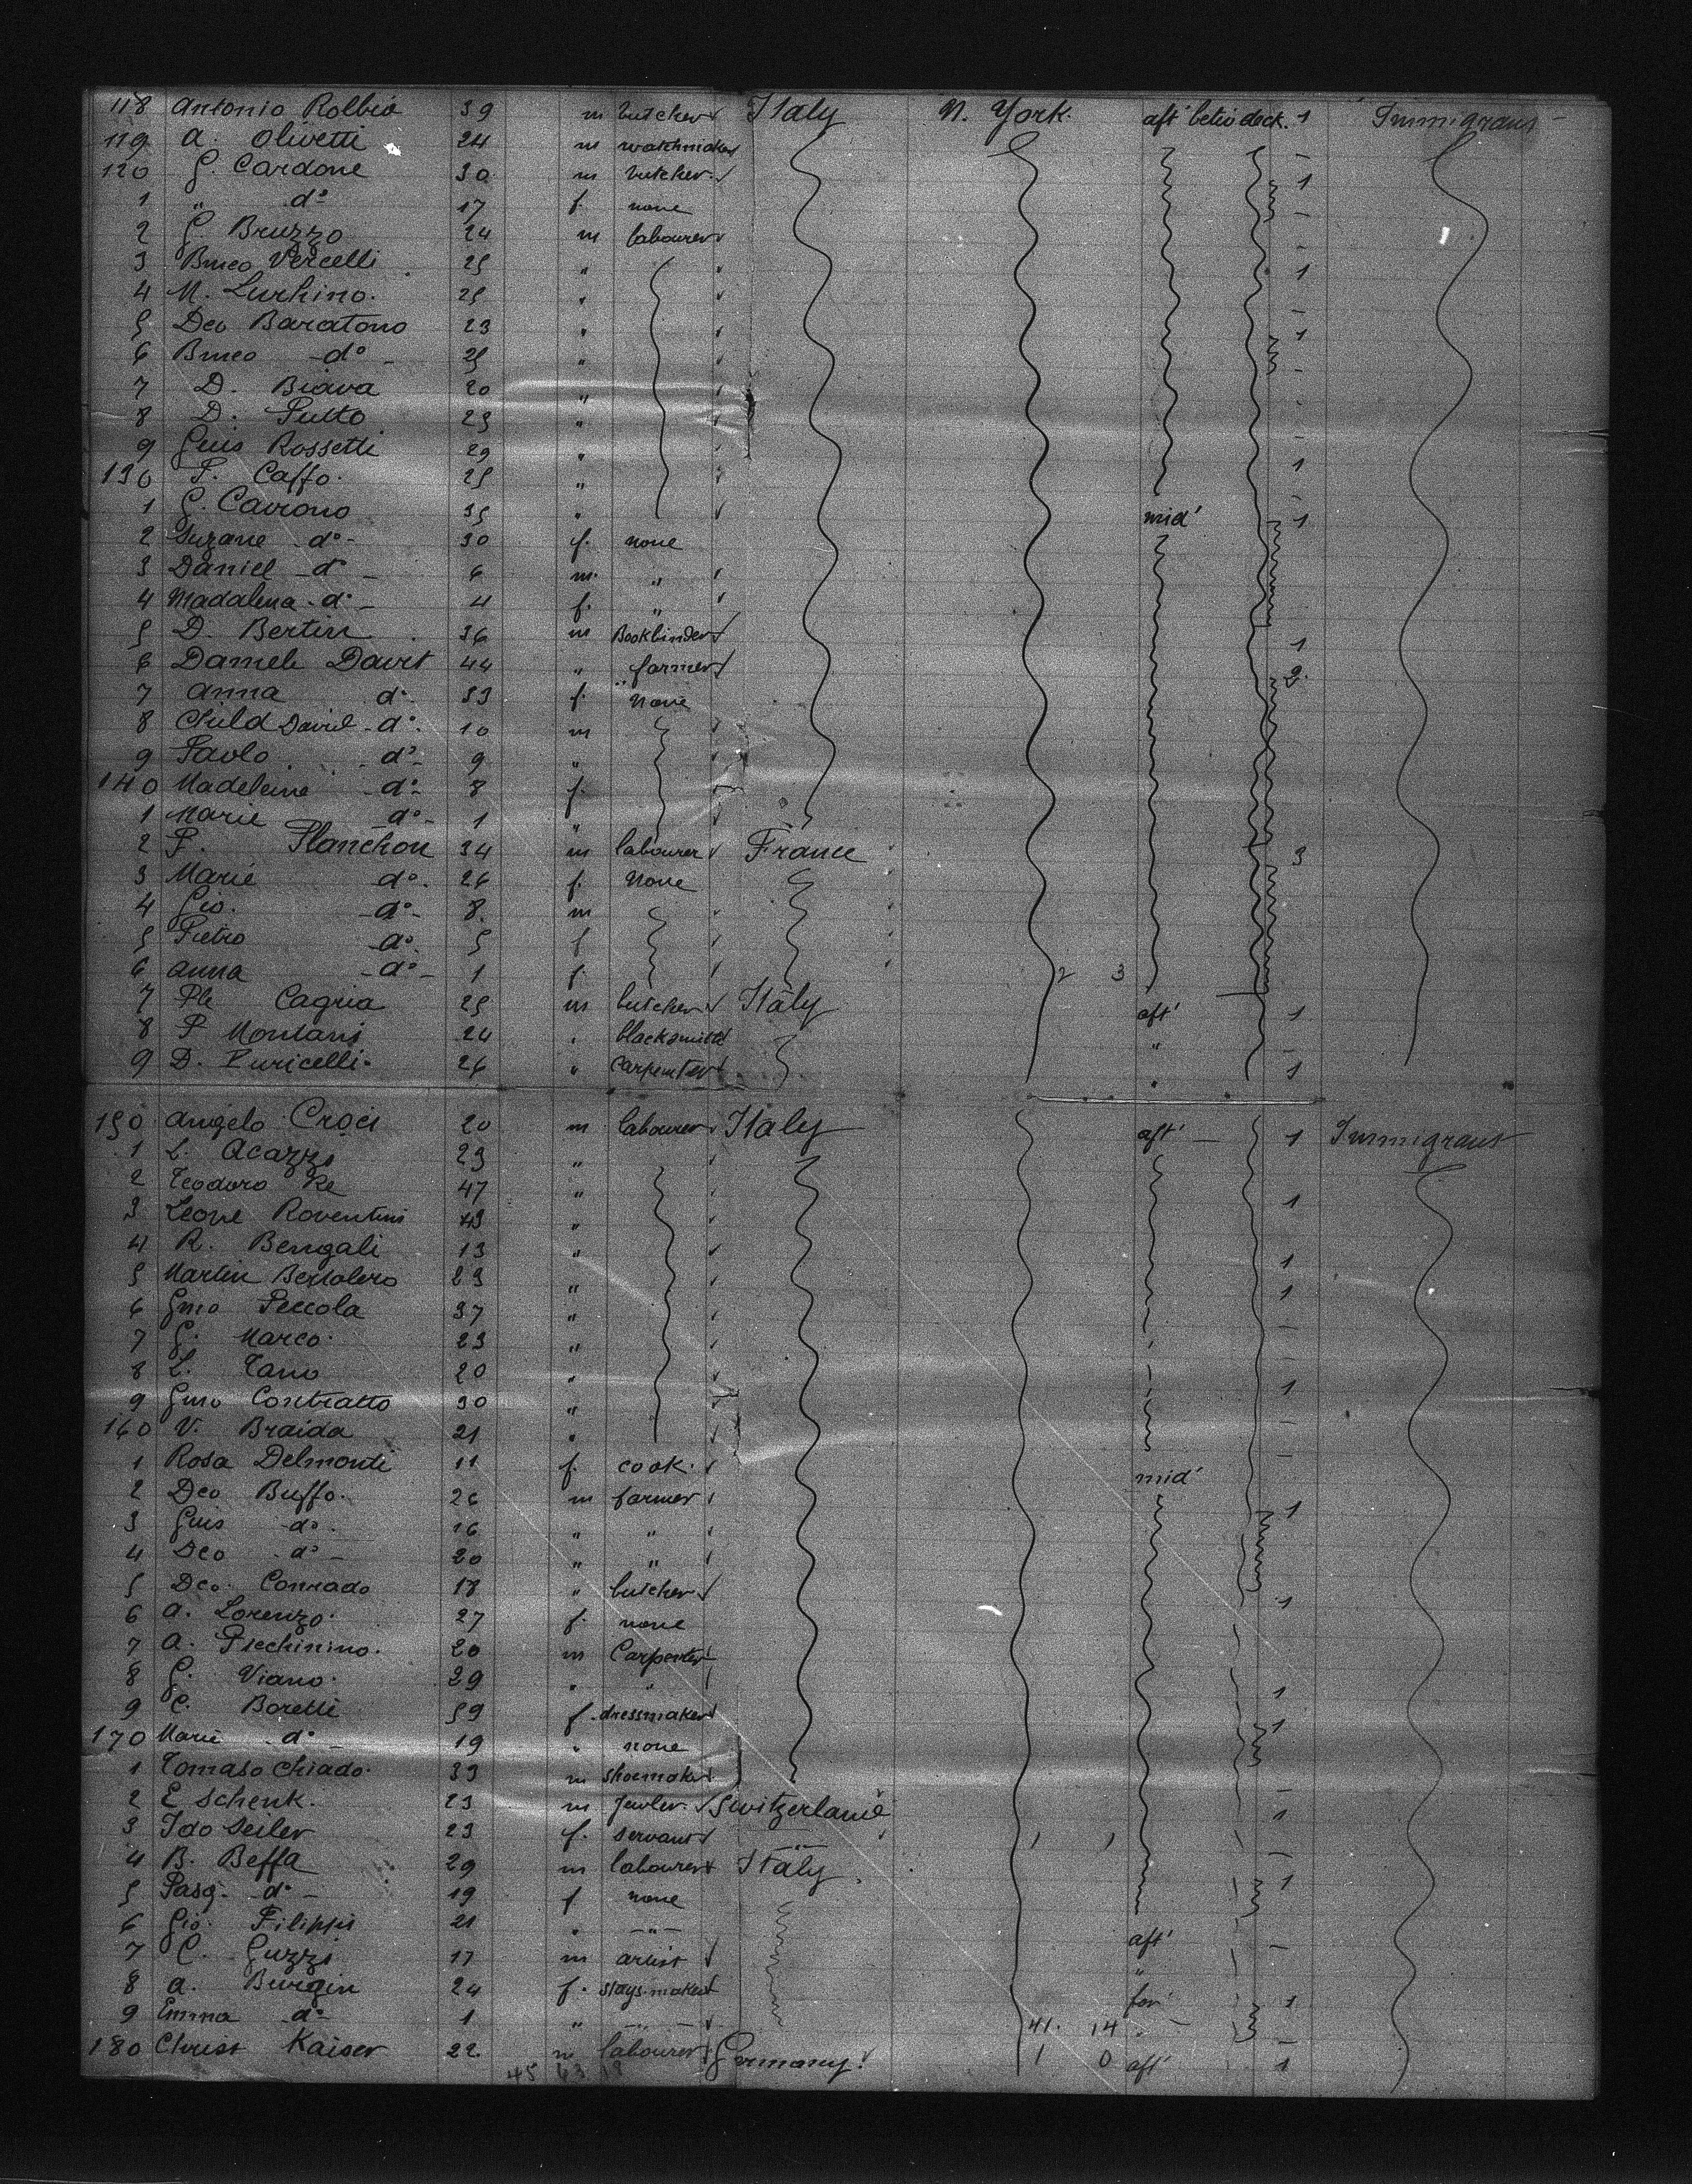 118 Antonio Rolbio 39 m butcher Italy N. York. aft betw deck. 1 Immigrant
119 A. Olivetti 24 m watchmaker –
120 G. Cardone 30 m butcher 1
1 " do 17 f. none –
2 G Bruzzo 24 m labourer –
3 Bmeo Vercelli 25 " 1
4 M. Lurhino. 25 "
5 Deo Baratono 23 " 1
6 Bmeo - do - 25 " –
7 D. Biava 20 " -
8 D. Putto 23 "
9 Guis Rossetti 29 " –
130 P. Caffo. 25 " 1
1 G. Cavrono 35 " mid' 1
2 Suzane - do - 30 f. none
3 Daniel - do - 6 m. "
4 Madalena - do - 4 f. "
5 D. Bertin 36 m Bookbinder 1
6 Daniele Davit 44 " farmer 2.
7 Anna do 33 f. None
8 Child David - do. 10 m
9 Paolo do - 9 "
140 Madeleine - do - 8 f.
1 Marie do - 1 "
2 P. Planchon 34 m labourer France 3
3 Marie do. 26 f. None
4 Gio. - do - 8. m
5 Pietro - do. 5 f
6 Anna - do - 1 f. 2 3
7 Ple Cagria 25 m butcher Italy aft' 1
8 P Montani 24 " blacksmith " –
9 D. Puricelli. 26 " Carpenter " 1
150 Angelo Croci 20 m labourer Italy aft' – 1 Immigrant
1 L. Acazzi 23 "
2 Teodoro Re 47 " 1
3 Leone Roventini 43 "
4 R. Bengali 13 " 1
5 Martin Bertolero 23 " 1
6 Gmo Peccola 37 " –
7 G. Marco. 23 " –
8 L. Tano 20 " 1
9 Gmo Contratto 30 "
160 V. Braida 21 " –
1 Rosa Delmonti 11 f. cook. mid' –
2 Deo Buffo. 26 m farmer 1
3 Guis do. 16 " "
4 Deo - do - 20 " "
5 Deo. Conrado 18 " butcher 1
6 A. Lorenzo. 27 f. none
7 A. Picchinino. 20 m Carpenter
8 G. Viano. 29 " " 1
9 C. Boretti 59 f. dressmaker 1
170 Marie - do - 19 " none
1 Tomaso Chiado. 39 m shoemaker –
2 E Schenk. 23 m Jewler. Switzerland 1
3 Ido Seiler 23 f. servant – " – 1 1
4 B. Beffa 29 m labourer Italy –
5 Pasq. - do - 19 f none 1
6 Gio. Filippi 21 " – " – aft'
7 C. Guzzi 17 m artist " –
8 A. Burgin 24 f. stays maker for' 1
9 Emma - do - 1 " – " – 41. 14 " –
180 Christ Kaiser 22 m labourer Germany. 1 0 aft' 1
45 63 18